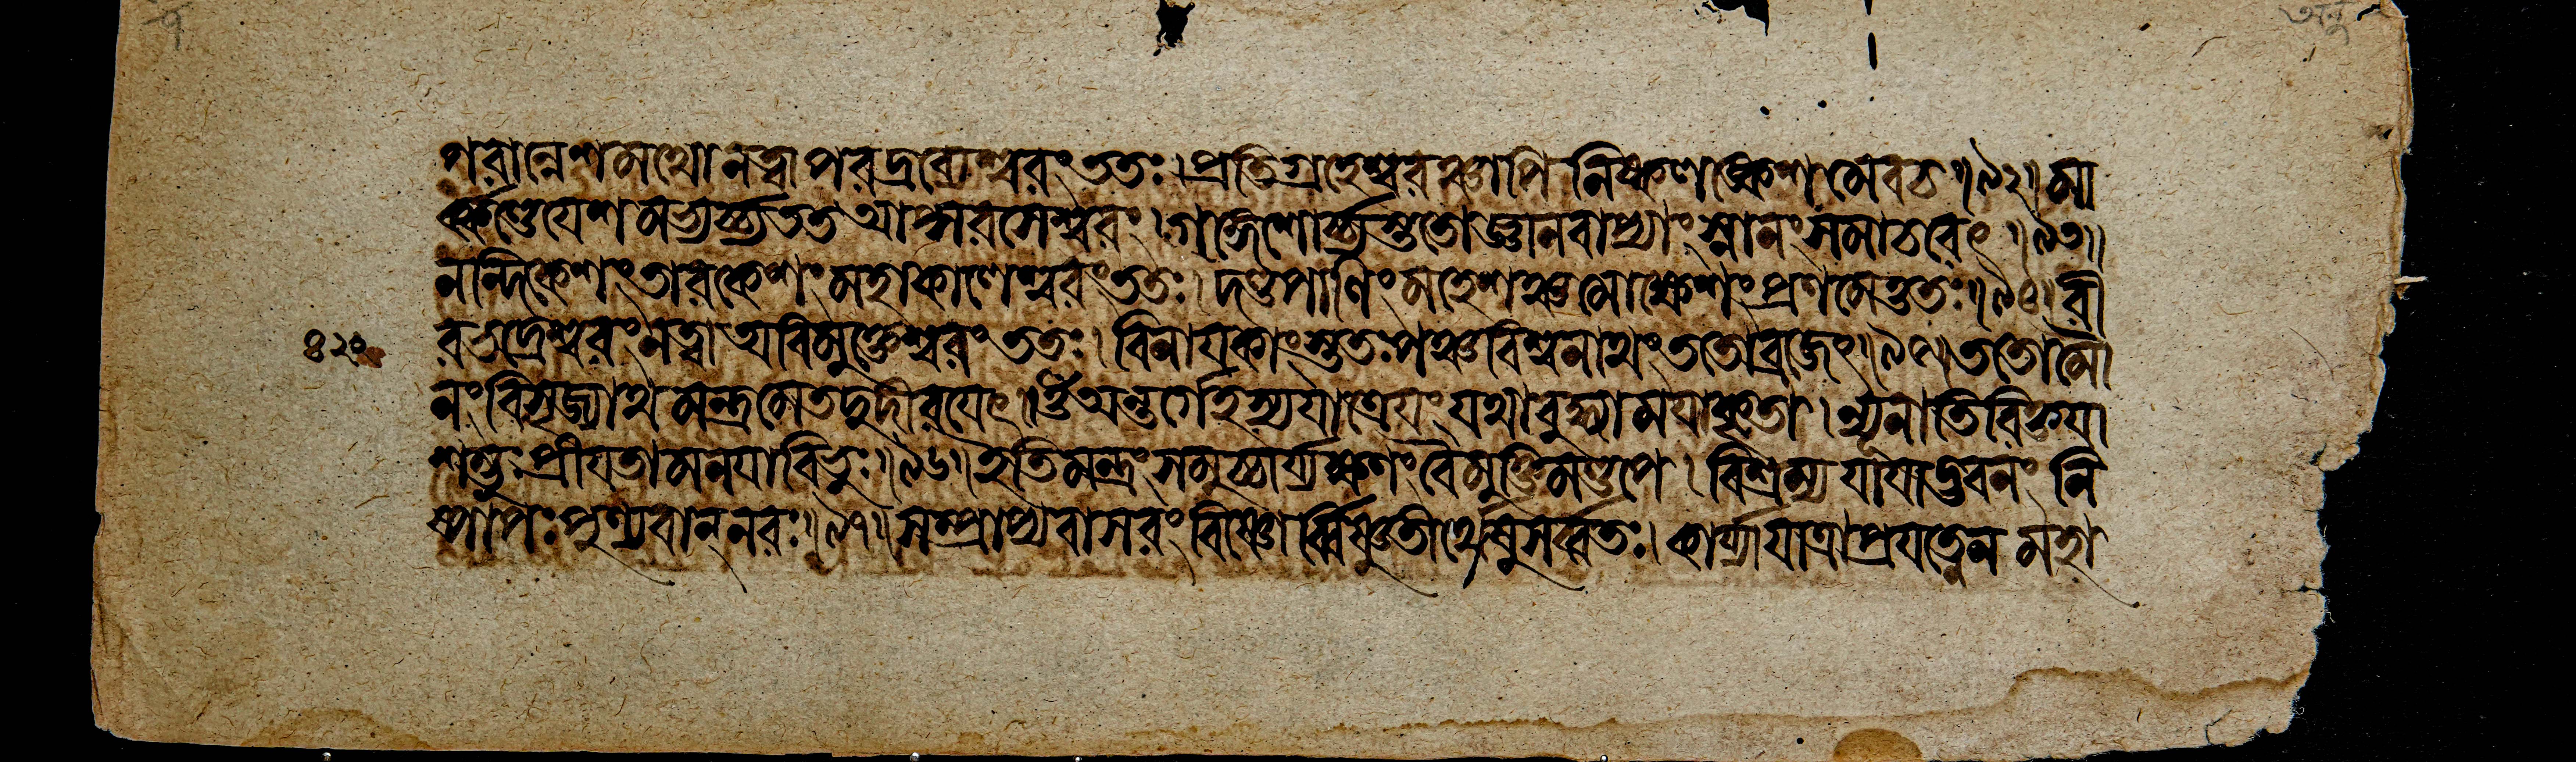 পরান্নেশমথো নত্বা পরদ্রব্যেশ্বরং ততঃ। প্রতিগ্রহেশ্বরঞ্চাপি নিষ্কলঙ্কেশমেব চ॥৯২॥মা
র্ক্কণ্ডেয়েশমভ্যর্চ্চ্য তত আপ্সরসেশ্বরং। গঙ্গেশোর্চ্চ্যস্ততো জ্ঞানবাপ্যাং স্নানং সমাচরেৎ॥৯৩॥
নন্দিকেশং তারকেশং মহাকালেশ্বরং ততঃ। দণ্ডপাণিং মহেশঞ্চ মোক্ষেশং প্রণমেত্ততঃ॥৯৪॥বী
রভদ্রেশ্বরং নত্বা অবিমুক্তেশ্বরং ততঃ। বিনায়কাংস্ততঃ পঞ্চ বিশ্বনাথং ততো ব্রজেৎ॥৯৫॥ততো মৌ
নং বিসৃজ্যাথ মন্ত্রমেতদুদীরয়েৎ। ওঁ অন্তর্গেহস্য যাত্রেয়ং যথাবদ্যা ময়া কৃতা। ন্যূনাতিরিক্তয়া
শম্ভুঃ প্রীয়তামনয়া বিভুঃ॥৯৬॥ইতি মন্ত্রং সমুচ্চার্য্য ক্ষণং বৈ মুক্তিমণ্ডপে। বিশ্রম্য যায়াদ্ভবনং নি
ষ্পাপঃ পুণ্যবান্নরঃ॥৯৭॥সম্প্রাপ্য বাসরং বিষ্ণোর্ব্বিষ্ণুতীর্থেষু সর্ব্বতঃ। কার্য্যা যাত্রা প্রযত্নেন মহা
৪২০